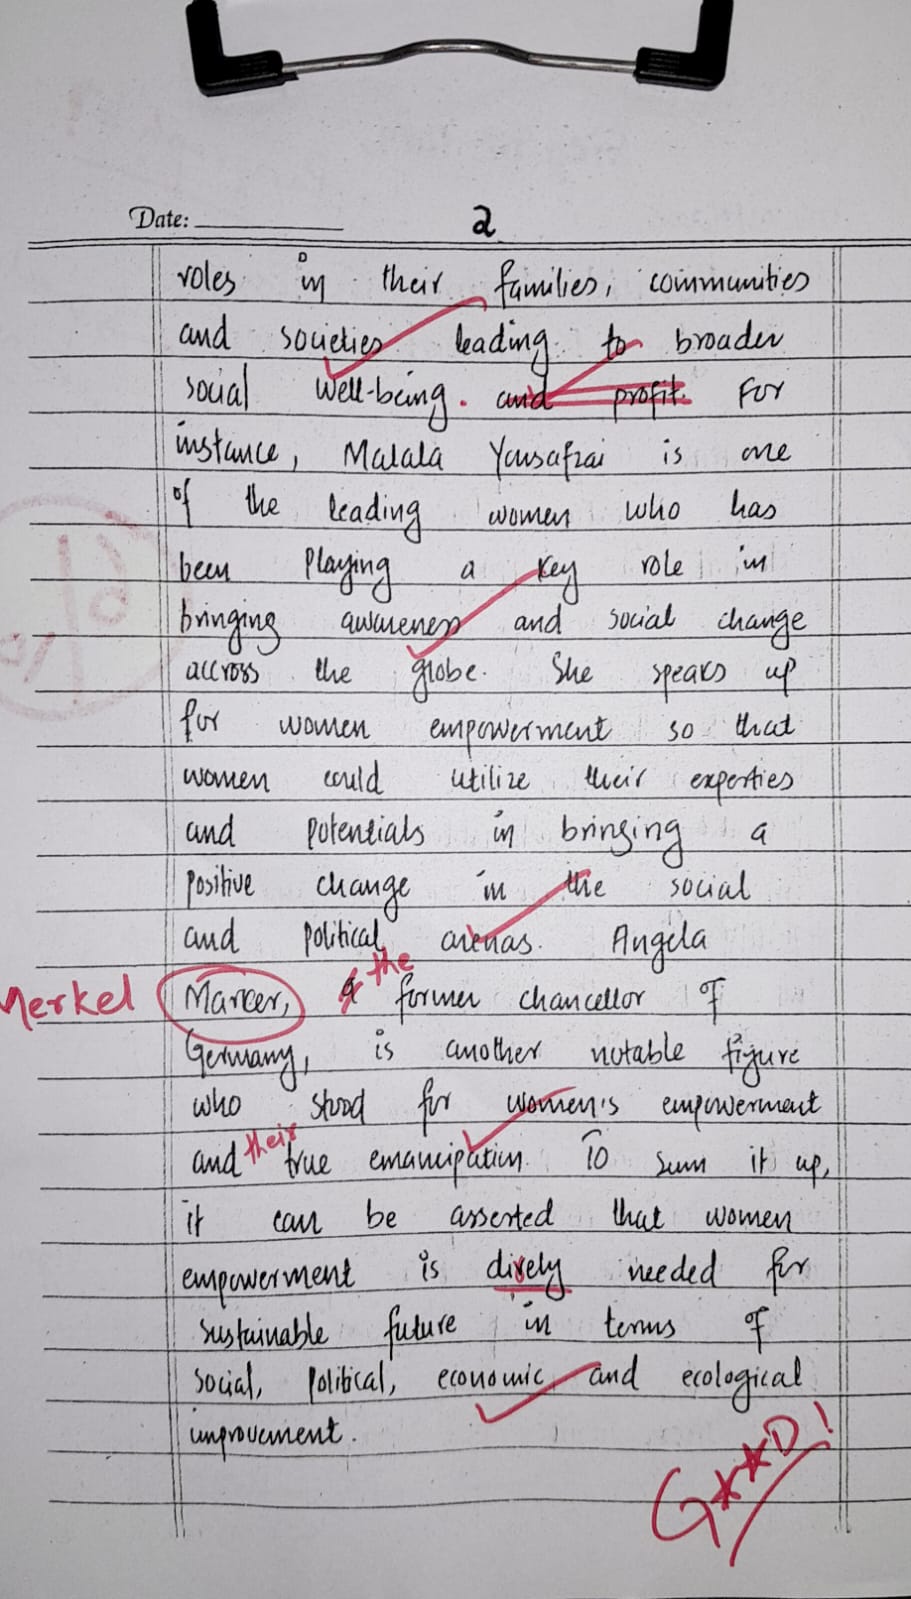 Date:
2
roles in their families, communities
and societies leading to broader
social well-being. and profit. For
instance, Malala Yousafzai is one
of the leading women who has
been playing a key role in
bringing awareness and social change
accross the globe. She speaks up
for women empowerment so that
women could utilize their experties
and potentials in bringing a
positive change in the social
and political arenas. Angela
the
Merkel Marcer, a former chancellor of
Germany, is another notable figure
who stood for women's empowerment
their
and true emancipation. To sum it up,
it can be asserted that women
empowerment is direly needed for
sustainable future in terms of
social, political, economic and ecological
improvement.
G**D!